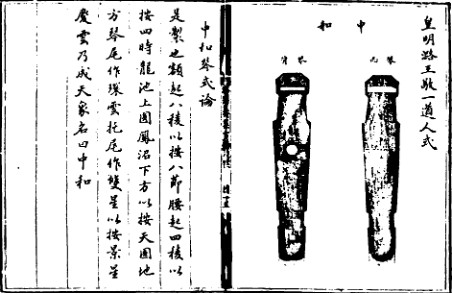 皇明潞王敬一道人式
中和
琴面
琴背
中和琴式論
是製也額起八稜以按八節腰起四稜以
按四時龍池上圓鳳沼下方以按天圓地
方琴尾作環雲托尾作雙星以按景星
慶雲乃成天象名曰中和